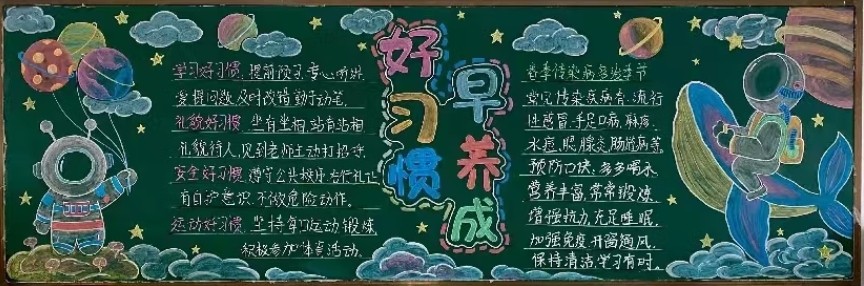 学习好习惯，提前预习，专心听讲
爱提问题，及时改错，勤于动笔。
礼貌好习惯，坐有坐相，站有站相
礼貌待人，见到老师主动打招呼。
安全好习惯，遵守公共秩序，右行礼让
有自护意识，不做危险动作。
运动好习惯，坚持每日运动锻炼
积极参加体育活动。
好习惯
早养成
春季传染病多发季节
常见传染疾病有：流行
性感冒、手足口病、麻疹、
水痘、腮腺炎、肠道病等
预防口诀：多多喝水
营养丰富，常常锻炼
增强抗力，充足睡眠
加强免疫，开窗通风
保持清洁，学习有时。